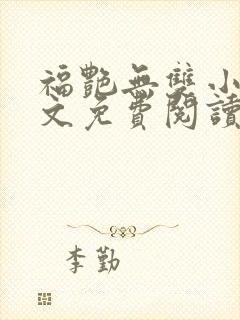 福艷無雙小
文免費閱讀
李勤